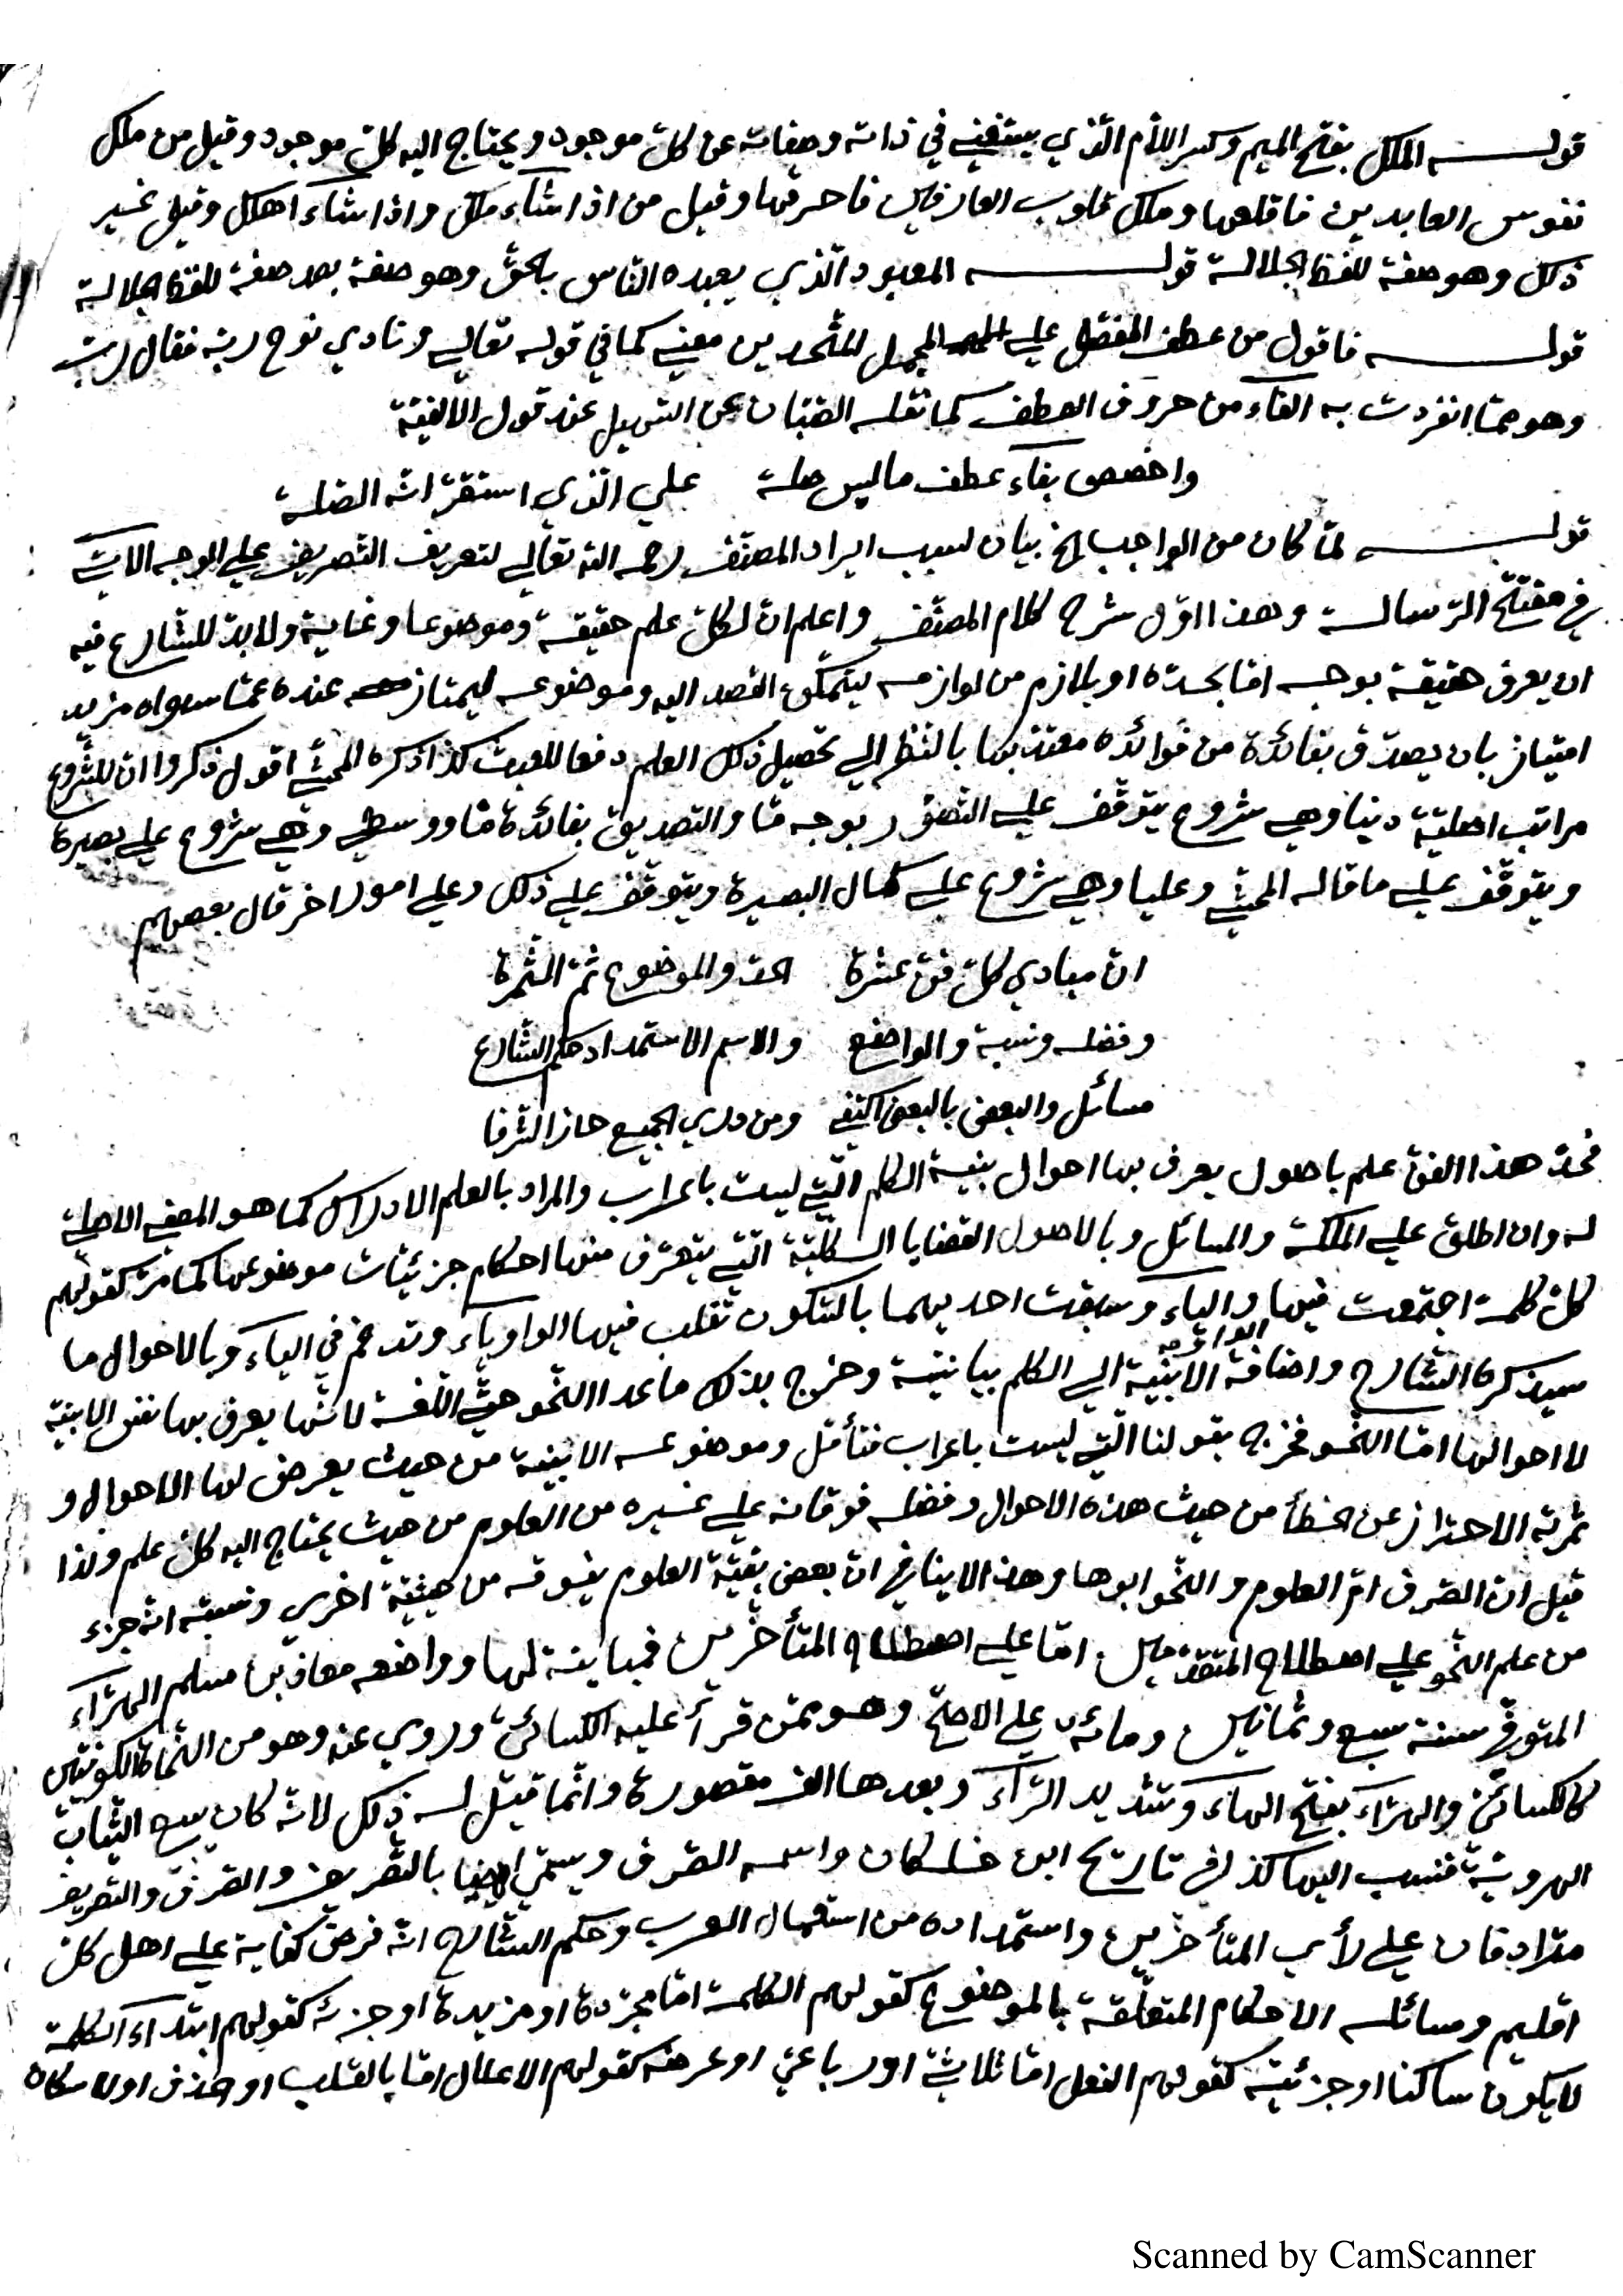 قولـــه الملك بفتح الميم وكسر اللام الذي يستغني في ذاته وصفاته عن كلّ موجود ويحتاج اليه كلّ موجود وقيل من ملك
نفوس العابدين فاقلقها وملك قلوب العارفين فاحرقها وقيل من اذا شاء ملك واذا شاء اهلك وقيل غير
ذلك وهو صفة للفظ الجلالة قولـــه المعبود الذي يعبده الناس بالحقّ وهو صفة بعد صفة للفظ الجلالة
قولـــه فاقول من عطف المفصّل علي المجمل المتّحدين معني كما في قوله تعالي ونادي نوح ربّه فقال ربّ
وهو ممّا انفردت به الفاء من حروف العطف كما نقله الصّبّان عن التسهيل عند قول الالفيّة
واخصص بفاء عطف ما ليس صلة علي الذي استقرّ انّه الصّلة
قولـــه لمّا كان من الواجب الخ بيان لسبب ايراد المصنّف رحمه الله تعالي لتعريف التصريف علي الوجه الاتي
في مفتتح الرّسالة وهذا اوّل شرح كلام المصنّف واعلم انّ لكلّ علم حقيقة وموضوعا وغاية ولا بدّ للشارع فيه
ان يعرف حقيقة بوجه امّا بحدّه او بلازم من لوازمه ليتمكّن القصد اليه وموضوعه ليمتاز عنده عمّا سواه مزيد
امتياز بان يصدّق بفائدة من فوائده معتدّ بها بالنظر الي تحصيل ذلك العلم دفعا للعبث كذا ذكره المحشّي اقول ذكروا انّ للشّروع
مراتب اصليّة دنيا وهي شروع يتوقّف علي التّصوّر بوجه مّا والتصديق بفائدة مّا ووسطي وهي شروع علي بصيرة
ويتوقّف علي ما قاله المحشّي وعليا وهي شروع علي كمال البصيرة ويتوقّف علي ذلك وعلي امور اخر قال بعضهم
انّ مبادي كلّ فنّ عشرة الحدّ والموضوع ثمّ الثّمرة
وفضله ونسبة والواضع والاسم الاستمداد حكم الشّارع
مسائل والبعض بالبعض اكتفي ومن دري الجميع حاز الشّرفا
فحدّ هذا الفنّ علم باصول يعرف بها احوال بنية الكلم الّتي ليست باعراب والمراد بالعلم الادراك كما هو المعني الاصلي
له وان اطلق علي الملكة والمسائل وبالاصول القضايا الكليّة الّتي يتعرّف منها احكام جزئيّات موضوعها كما مرّ كقولهم
كلّ كلمة اجتمعت فيها الواو والياء وسبقت احديهما بالسّكون تقلب فيها الواو ياء وتدغم في الياء وبالاحوال ما
سيذكره الشّارح واضافة الابنية الي الكلم بيانيّة وخرج بذلك ماعدا النّحو حتّي اللّغة لانّها يعرف بها نفس الابنية
لا احوالها امّا النّحو فخرج بقولنا الّتي ليست باعراب فتأمّل وموضوعه الابنية من حيث يعرض لها الاحوال و
ثمرته الاحتراز عن الخطأ من حيث هذه الاحوال وفضله فوقانه علي غيره من العلوم من حيث يحتاج اليه كلّ علم ولذا
قيل انّ الصّرف امّ العلوم والنّحو ابوها وهذا لا ينافي انّ بعض بقيّة العلوم يفوقه من حيثيّة اخري ونسبته انّه جزء
من علم النّحو علي اصطلاح المتقدّمين امّا علي اصطلاح المتأخّرين فمباينة لها وواضعه معاذ بن مسلم الهرّاء
المتوفّي سنة سبع وثمانين ومائة علي الاصحّ وهو ممّن قرأ عليه الكسائيّ وروي عنه وهو من النّحاة الكوفيّين
كالكسائيّ والهرّاء بفتح الهاء وتشديد الرّاء وبعدها الف مقصورة وانّما قيل له ذلك لانّه كان يبيع الثّياب
الهرويّة فنسب اليها كذا في تاريخ ابن خلكان واسمه الصّرف ويسمّي ايضا بالتّصريف والصّرف والتصريف
مترادفان علي رأي المتأخّرين واستمداده من استعمال العرب وحكم الشّارع انّه فرض كفاية علي اهل كلّ
اقليم ومسائله الاحكام المتعلّقة بالموضوع كقولهم الكلمة امّا مجرّدة او مزيدة او جزئه كقولهم ابتداء الكلمة
لا يكون ساكنا او جزئيّه كقولهم الفعل امّا ثلاثيّ او رباعيّ او عرضه كقولهم الاعلال امّا بالقلب او الحذف او الاسكان
Scanned by CamScanner